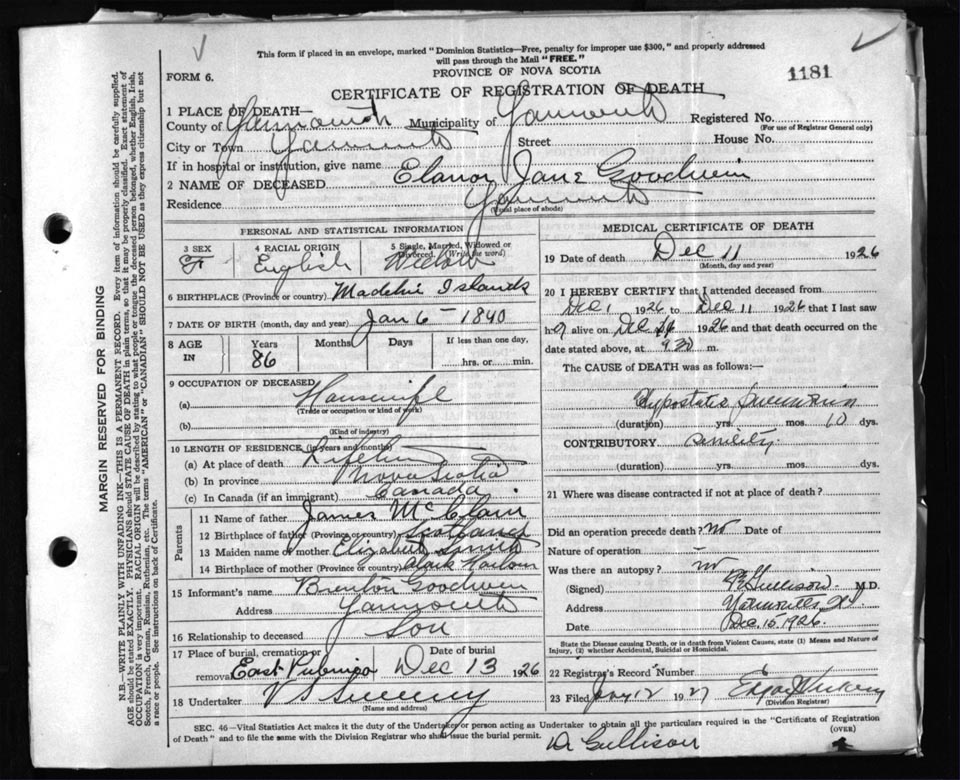 This form if placed in an envelope, marked "Dominion Statistics—Free, penalty for improper use $300," and properly addressed
will pass through the Mail "FREE."
PROVINCE OF NOVA SCOTIA
FORM 6.
1181
CERTIFICATE OF REGISTRATION OF DEATH
1 PLACE OF DEATH—
County of Yarmouth Municipality of Yarmouth Registered No.
(For use of Registrar General only)
City or Town Yarmouth Street House No.
If in hospital or institution, give name
2 NAME OF DECEASED Elanor Jane Goodwin
Residence Yarmouth
(Usual place of abode)
PERSONAL AND STATISTICAL INFORMATION
3 SEX 4 RACIAL ORIGIN 5 Single, Married, Widowed or
Divorced (Write the word)
F English Widow
6 BIRTHPLACE (Province or country) Madelin Islands
7 DATE OF BIRTH (month, day and year) Jan 6 - 1840
8 AGE IN Years Months Days If less than one day,
86 hrs. or min.
9 OCCUPATION OF DECEASED
(a) Housewife
(Trade or occupation or kind of work)
(b)
(Kind of industry)
10 LENGTH OF RESIDENCE (in years and months)
(a) At place of death
(b) In province Nova Scotia
(c) In Canada (if an immigrant) Canada
Parents
11 Name of father James McClain
12 Birthplace of father (Province or country) Scotland
13 Maiden name of mother Elizabeth Smith
14 Birthplace of mother (Province or country) Clark Harbour
15 Informant's name Brenton Goodwin
Address Yarmouth
16 Relationship to deceased Son
17 Place of burial, cremation or removal Date of burial
East Pubnico Dec 13 1926
18 Undertaker V S Sweeny
(Name and address)
MEDICAL CERTIFICATE OF DEATH
19 Date of death Dec 11 1926
(Month, day and year)
20 I HEREBY CERTIFY that I attended deceased from
Dec 1 1926 to Dec 11 1926 that I last saw
her alive on Dec 1926 and that death occurred on
date stated above, at 930 m.
The CAUSE of DEATH was as follows:—
Hypostatic Pneumonia
(duration) yrs. mos. 10 dys.
CONTRIBUTORY senility
(duration) yrs. mos. dys.
21 Where was disease contracted if not at place of death?
Did an operation precede death? no Date of
Nature of operation
Was there an autopsy? no
(Signed) Gullison M.D.
Address Yarmouth, N.S.
Date Dec. 16. 1926.
State the Disease causing Death, or in death from Violent Causes, state (1) Means and Nature of
Injury, (2) whether Accidental, Suicidal or Homicidal.
22 Registrar's Record Number 6
23 Filed Jany 12 1927
(Division Registrar)
SEC. 46—Vital Statistics Act makes it the duty of the Undertaker or person acting as Undertaker to obtain all the particulars required in the "Certificate of Registration
of Death" and to file the same with the Division Registrar who shall issue the burial permit.
(OVER)
Dr Gullison
MARGIN RESERVED FOR BINDING
N.B.—WRITE PLAINLY WITH UNFADING INK—THIS IS A PERMANENT RECORD. Every item of information should be carefully supplied.
AGE should be stated EXACTLY. PHYSICIANS should STATE CAUSE OF DEATH in plain terms, so that it may be properly classified. Exact statement of
OCCUPATION is very important. RACIAL ORIGIN will be described by stating to what people or tongue the deceased person belonged, whether English, Irish,
Scotch, French, German, Russian, Ruthenian, etc. The terms "AMERICAN" or "CANADIAN" SHOULD NOT BE USED as they express citizenship but not
a race or people. See instructions on back of Certificate.